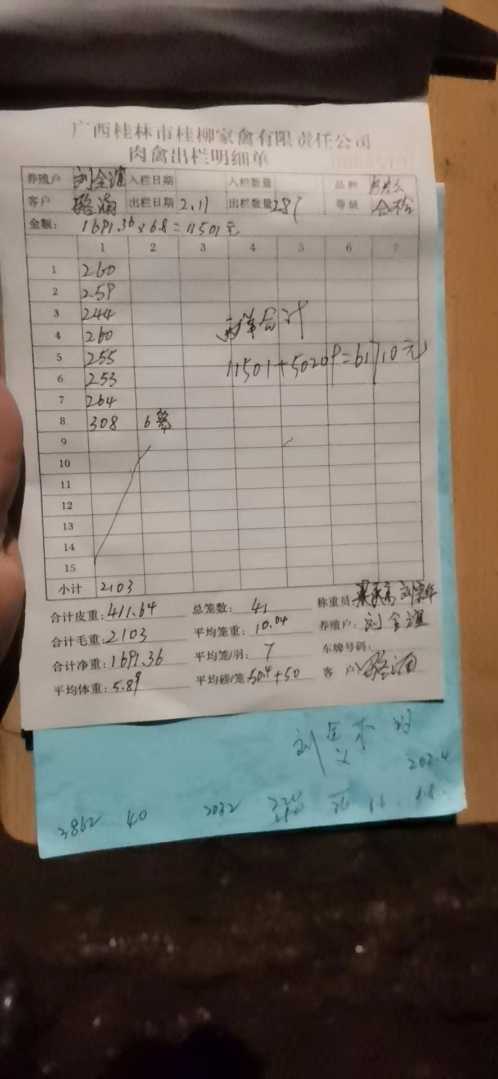 广西桂林市桂柳家禽有限责任公司
肉禽出栏明细单
养殖户 入栏日期 入栏数量 品种
客户 出栏日期 2.11 出栏数量 287 等级 合格
金额: 1691.36×6.8=11501元
1 2 3 4 5 6 7
1 260
2 259
3 244
4 260
5 255
6 253
7 264
8 308 6笼
9
10
11
12
13
14
15
两单合计
11501+50209=61710元
小计 2103
合计皮重: 411.64 总笼数: 41 称重员
合计毛重: 2103 平均笼重: 10.04 养殖户: 刘全
合计净重: 1691.36 平均笼/羽: 7 车牌号码:
平均体重: 5.89 平均磅/笼 50.4+50 客户
40 2032